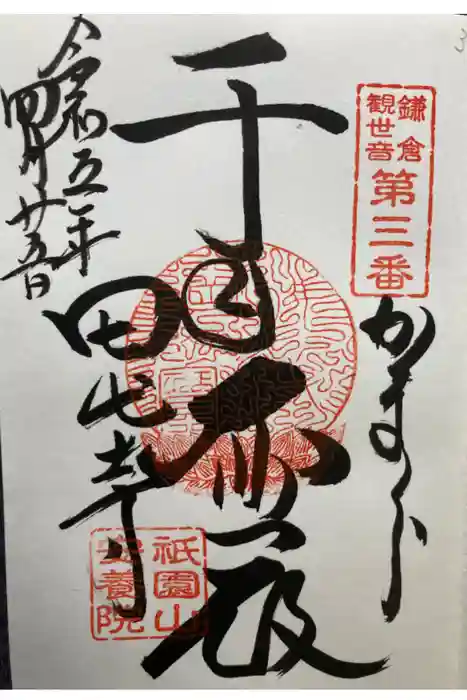 鎌倉
観世音
第三番
かまくら
千
殿
田代寺
令和五年
四月廿五日
祇園山
安養院